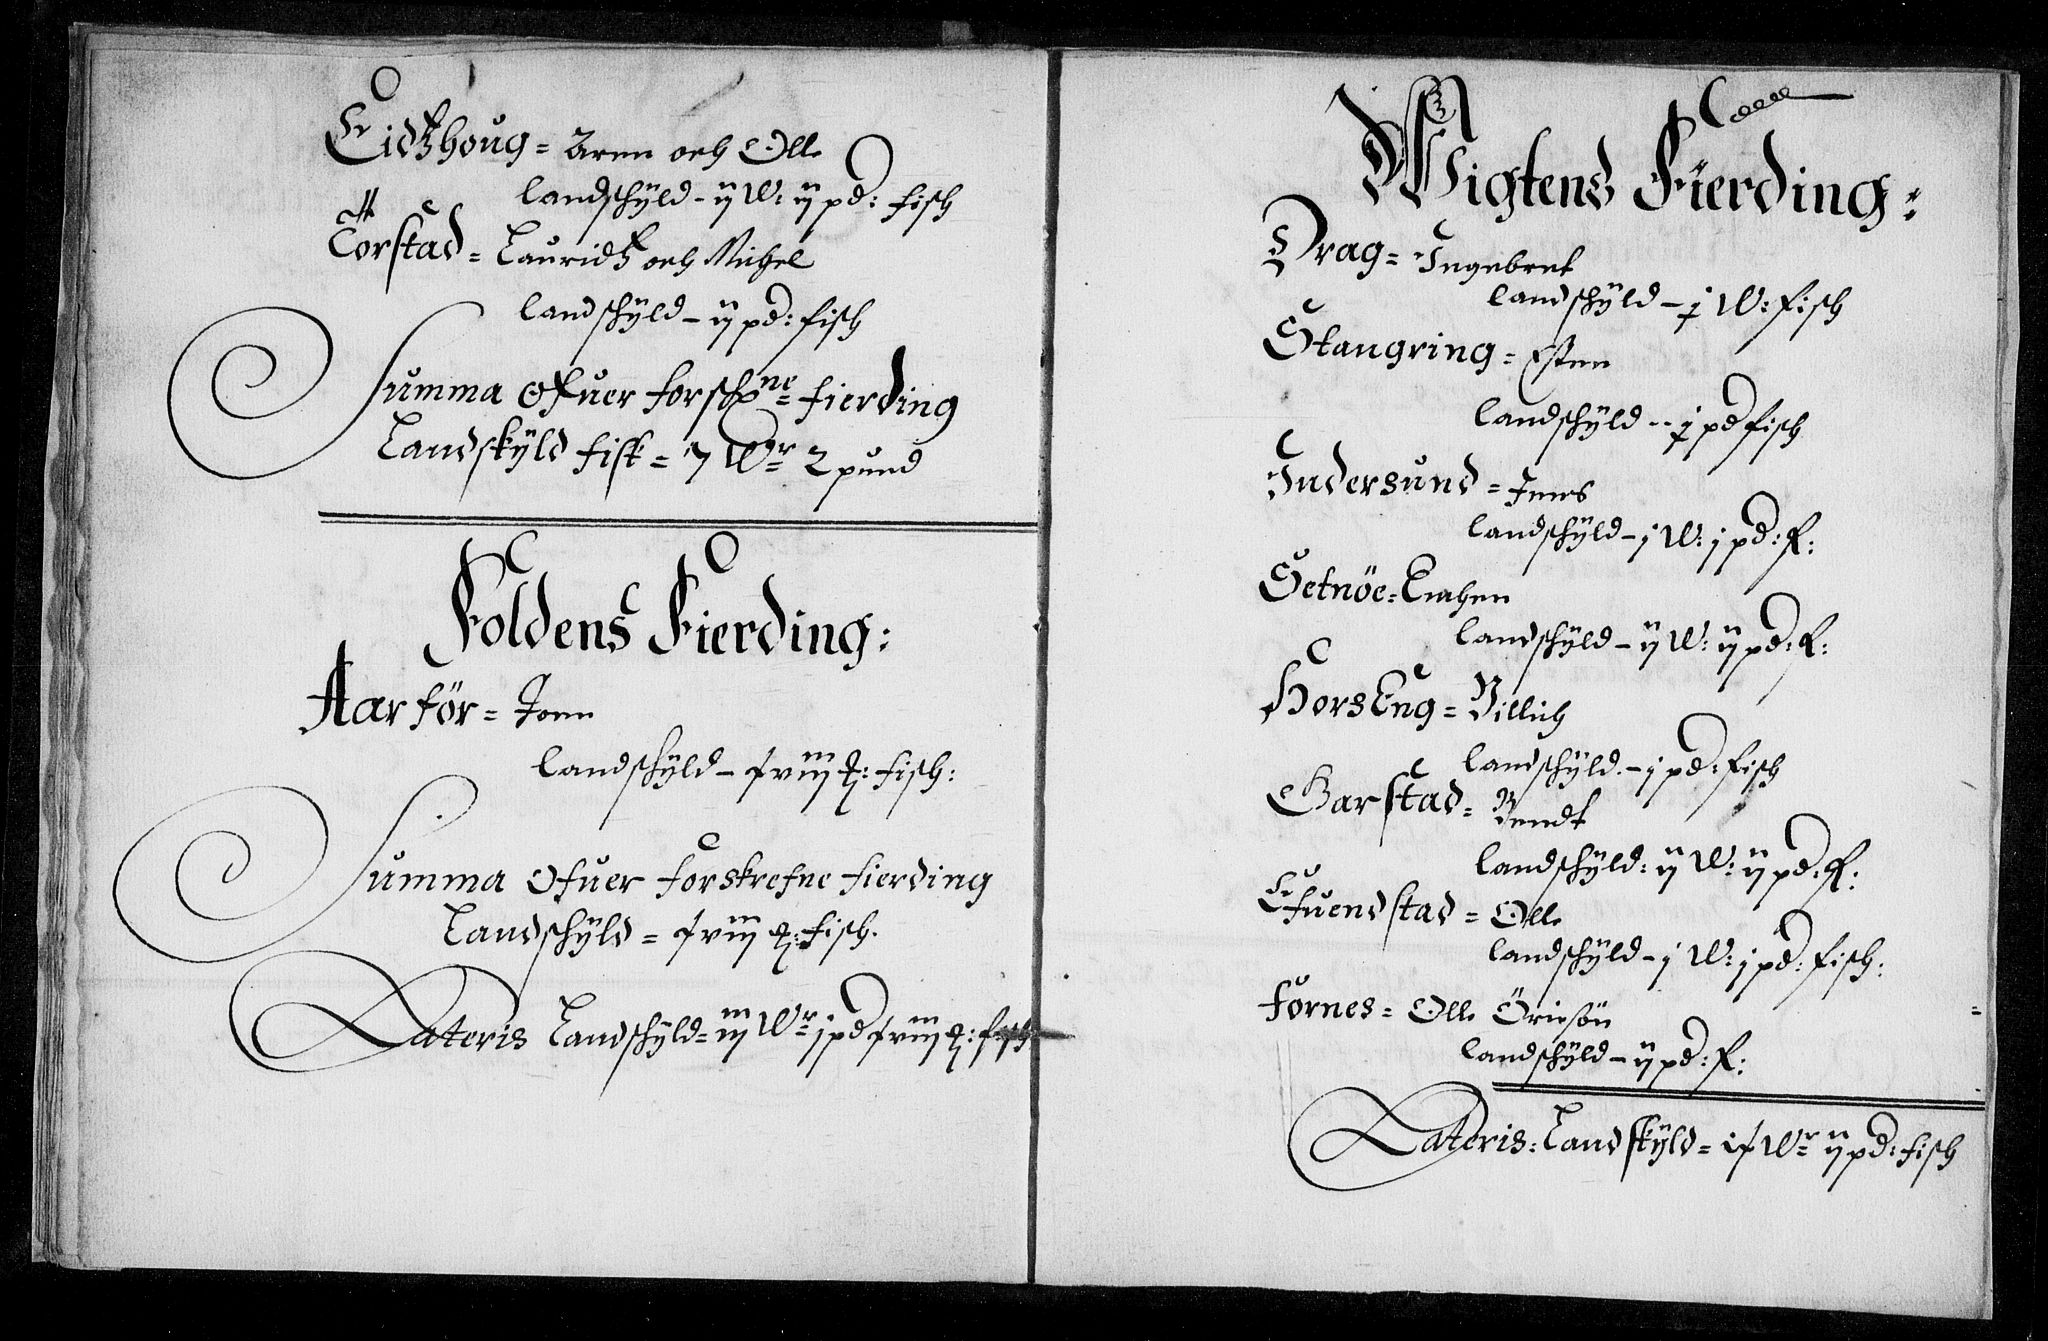 Eidtzhoug = Aren och Olle
landschÿld - ij W: ij pd: fisch
Torstad = Lauridtz och Michel
landschÿld - ij pd: fisch
Summa Ofuer forschne fierding
Landskÿld fisk = 7 Wr 2 pund
Foldens Fierding:
Aarför = Jonn
landschÿld - fisch:
Summa Ofuer forskrefne fierding
Landschÿld = fisch.
Lateris Landschÿld = iij Wr j pd fisch
Wigtens Fierding:
Drag = Ingebret
landschÿld - j W: fisch
Stangring = Esten
landschÿld -- j pd fisch
Indersund = Jens
landschÿld - j W: j pd: f:
Setnöe =
landschÿld - ij W: ij pd: f:
HorsEng = Villich
landschÿld - j pd: fisch
Garstad = Bendt
landschÿld: ij W: ij pd: f:
Efuendstad = Olle
landschÿld - j W: j pd: fisch:
fornes = Olle
landschÿld - ij pd: f:
Lateris: Landskÿld = Wr ij pd: fisch